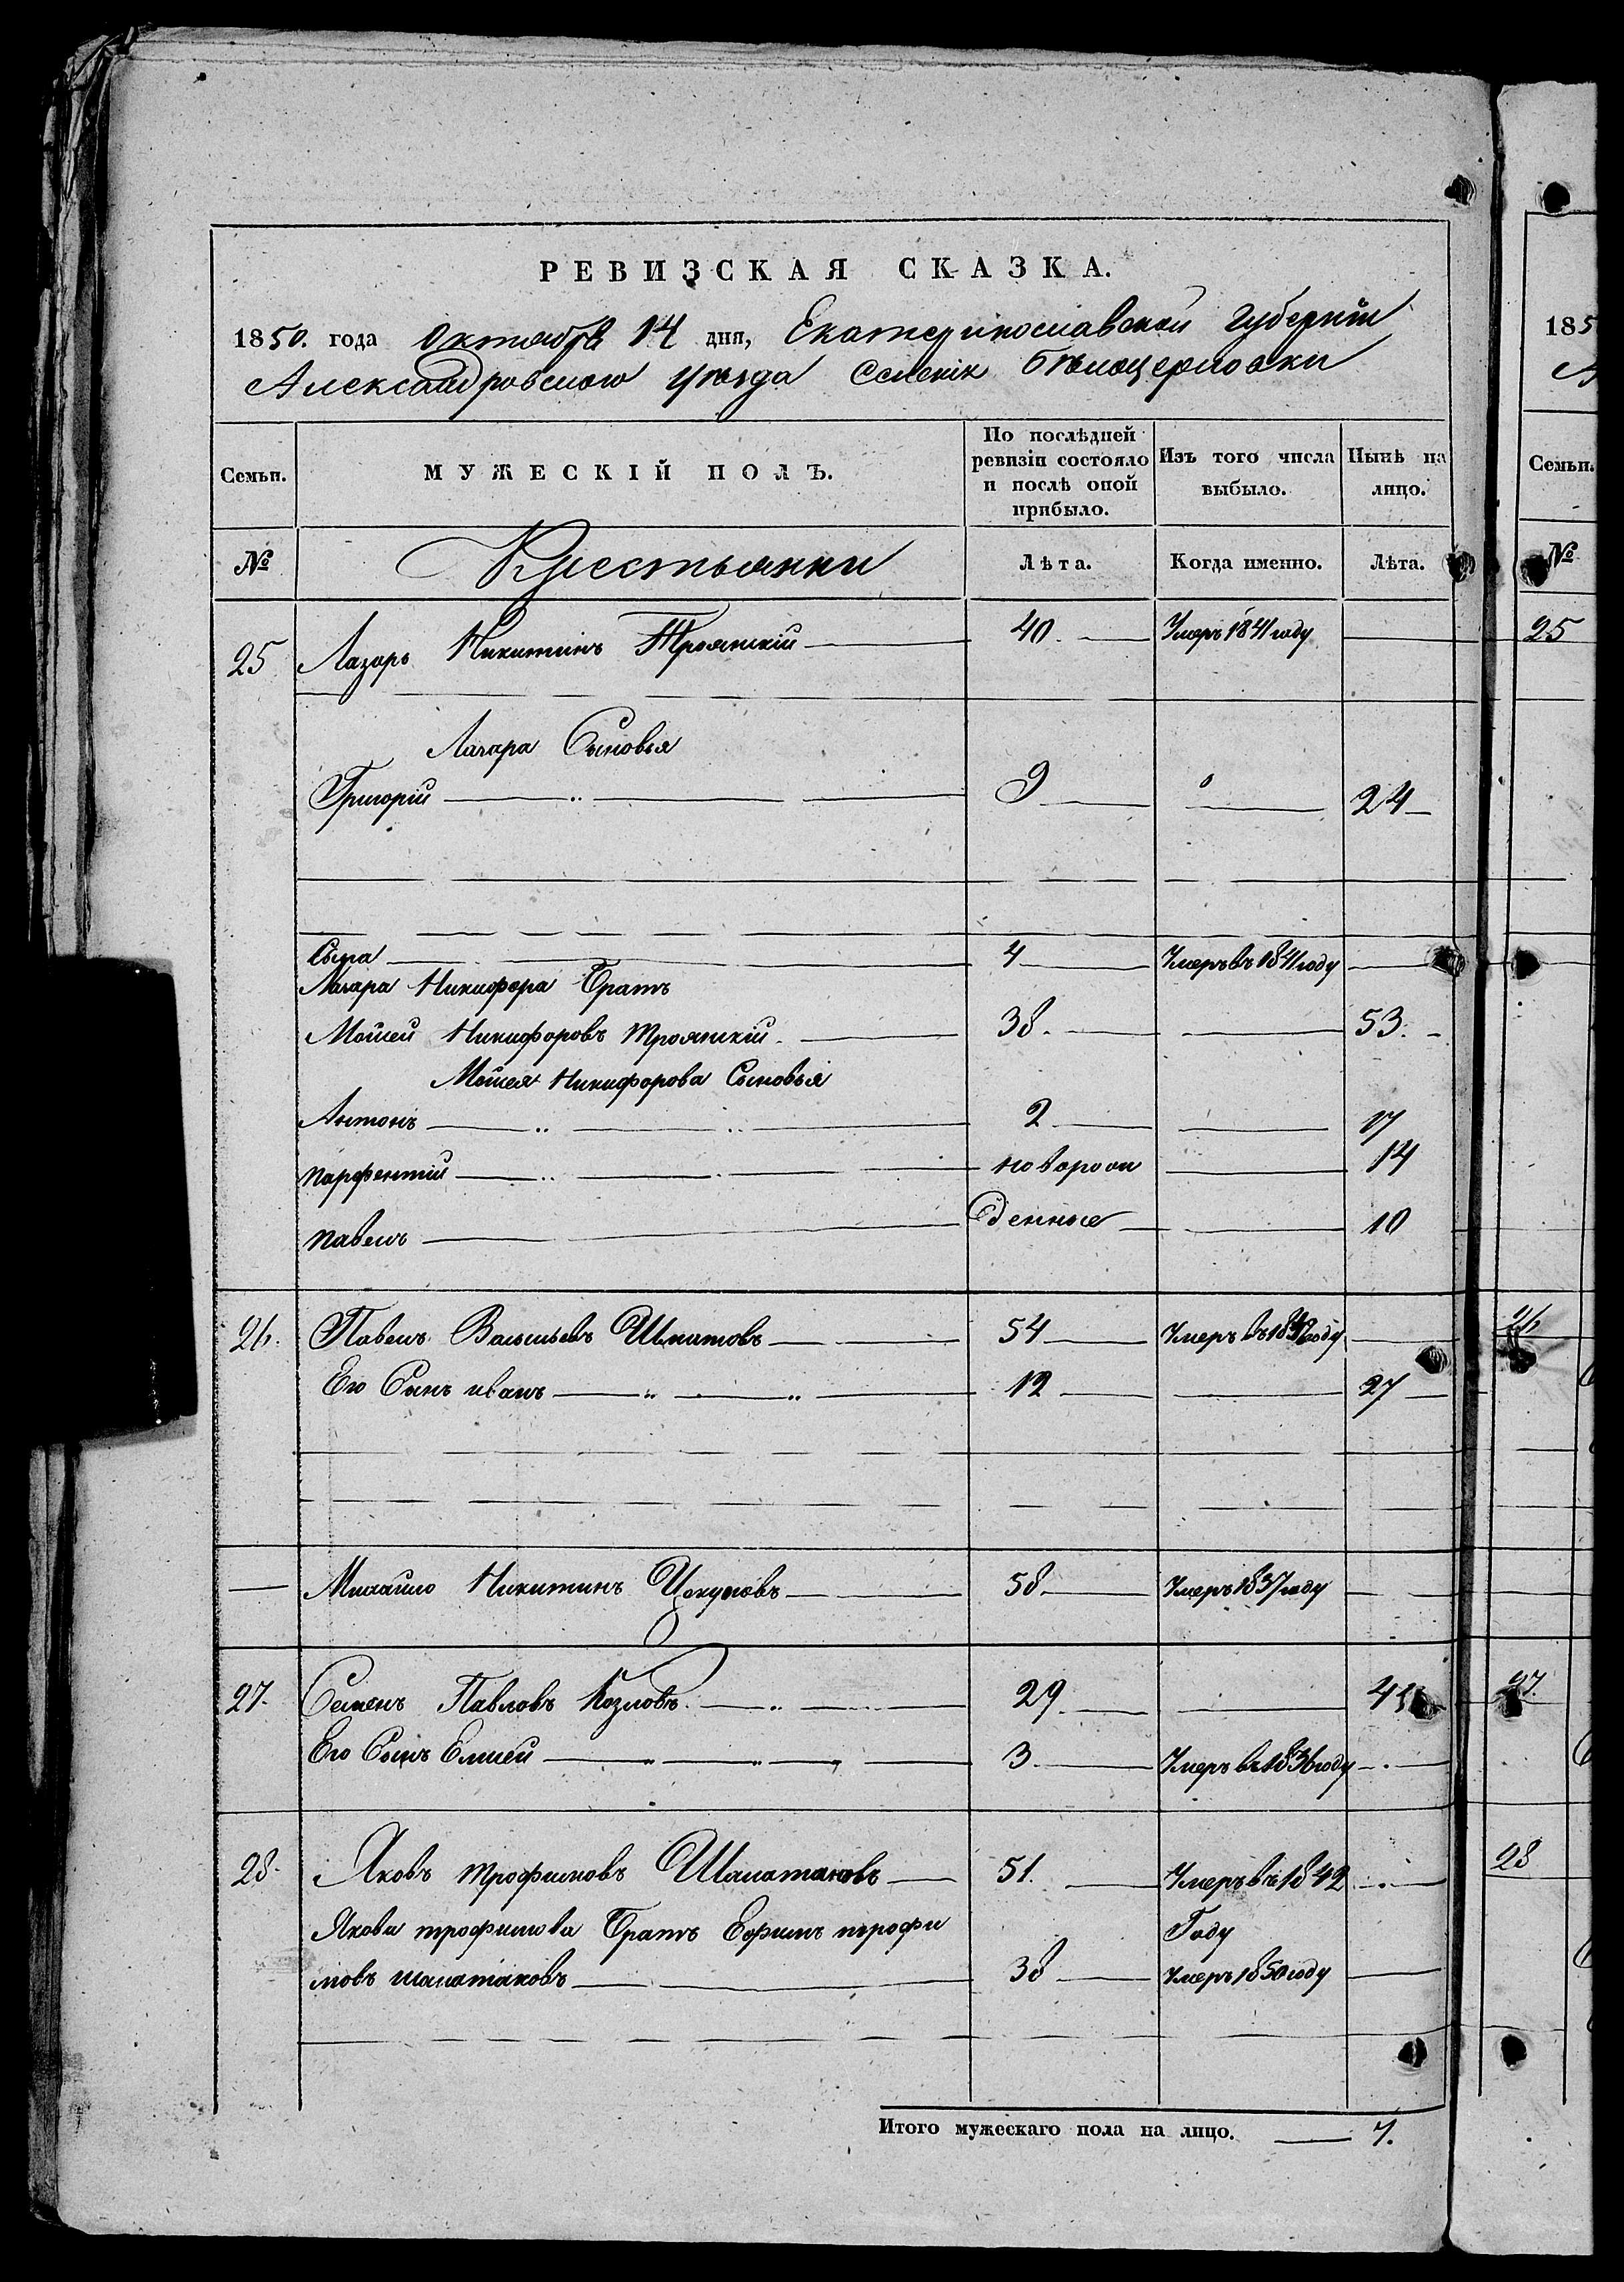 РЕВИЗСКАЯ СКАЗКА.
1850. года Октября 14 дня, Екатеринославской Губерніи
Александровского Уѣзда Селенія Бѣлоцерковки
185
Семьи. МУЖЕСКІЙ ПОЛЪ. По послѣдней ревизіи состояло и послѣ оной прибыло. Изъ того числа выбыло. Нынѣ на лицо. Семьи.
№ Крестьянки Лѣта. Когда именно. Лѣта. №
25 Лазарь Никитинъ Троянскій 40. Умеръ 1841 году 25
Лазаря Сыновья
Григорій 9 24
4 Умеръ въ 1841 году
Лазаря Никифора Братъ
Моисей Никифоровъ Троянскій. 38. 53.
Моисея Никифорова Сыновья
Антонъ 2 17
парфентій новорож 14
павелъ денные 10
26. Павелъ Васильевъ 54 Умеръ въ году 26
Его Сынъ иванъ 12 27
Михайло Никитинъ 58 Умеръ 1837 году
27. Семенъ Павловъ Козловъ. 29 27.
Его Сынъ Елисей 3. Умеръ въ 1836 году
28. Яковъ трофимовъ Шапатаковъ 51. Умеръ въ 1842 28
Якова трофимова Братъ Ефимъ трофи Году
мовъ шапатаковъ 38 Умеръ 1850 году
Итого мужескаго пола на лицо. 7.